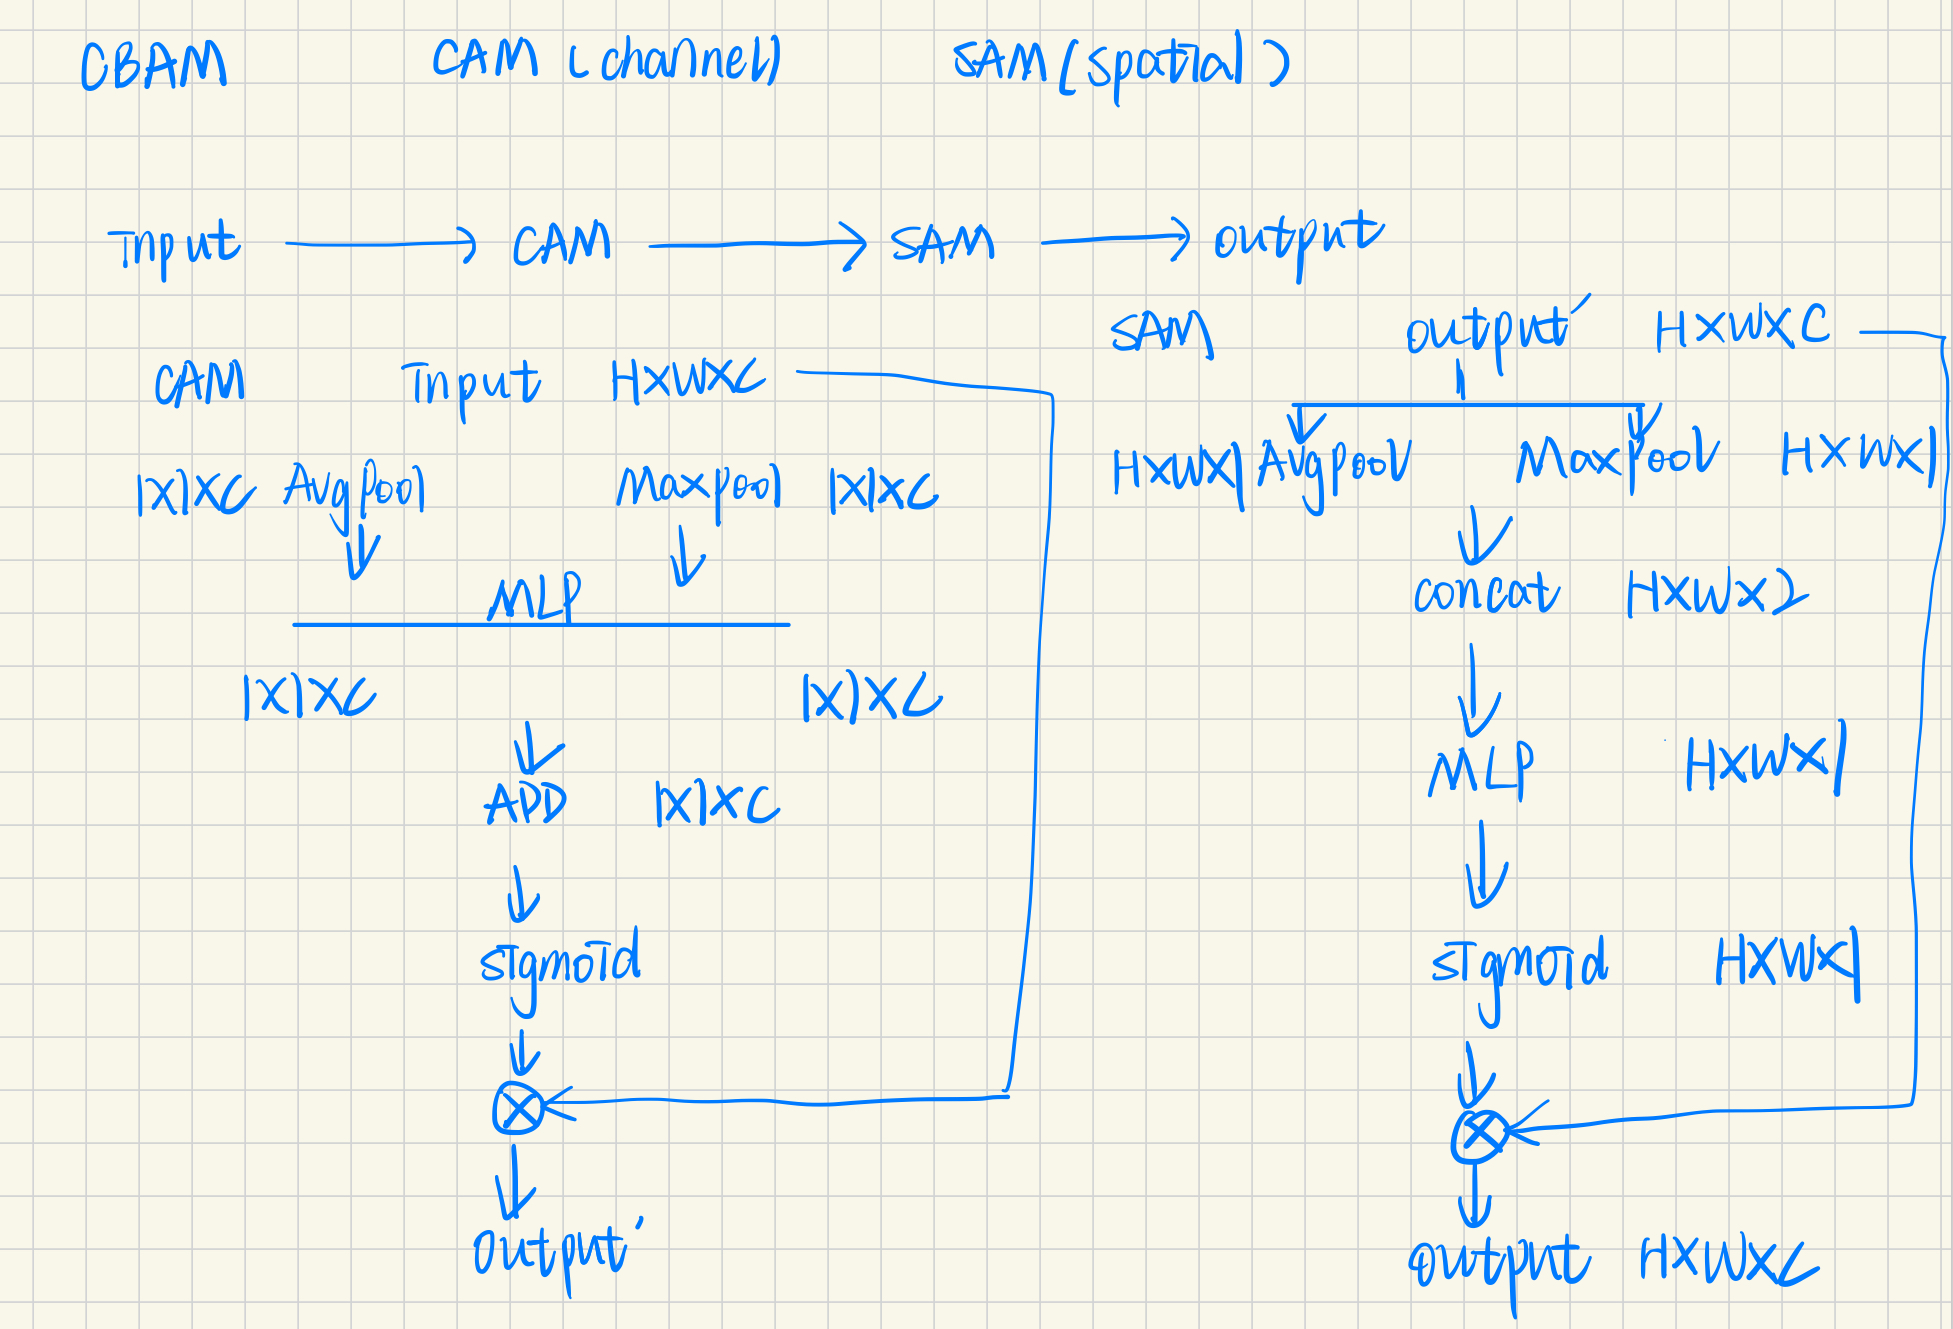 CBAM CAM (channel) SAM (spatial)
Input → CAM → SAM → output
CAM Input HXWXC
1X1XC AvgPool Maxpool 1X1XC
MLP
1X1XC 1X1XC
ADD 1X1XC
sigmoid
⊗
output'
SAM output' HXWXC
HXWX1 AvgPool MaxPool HXWX1
concat HXWX2
MLP HXWX1
sigmoid HXWX1
⊗
output HXWXC